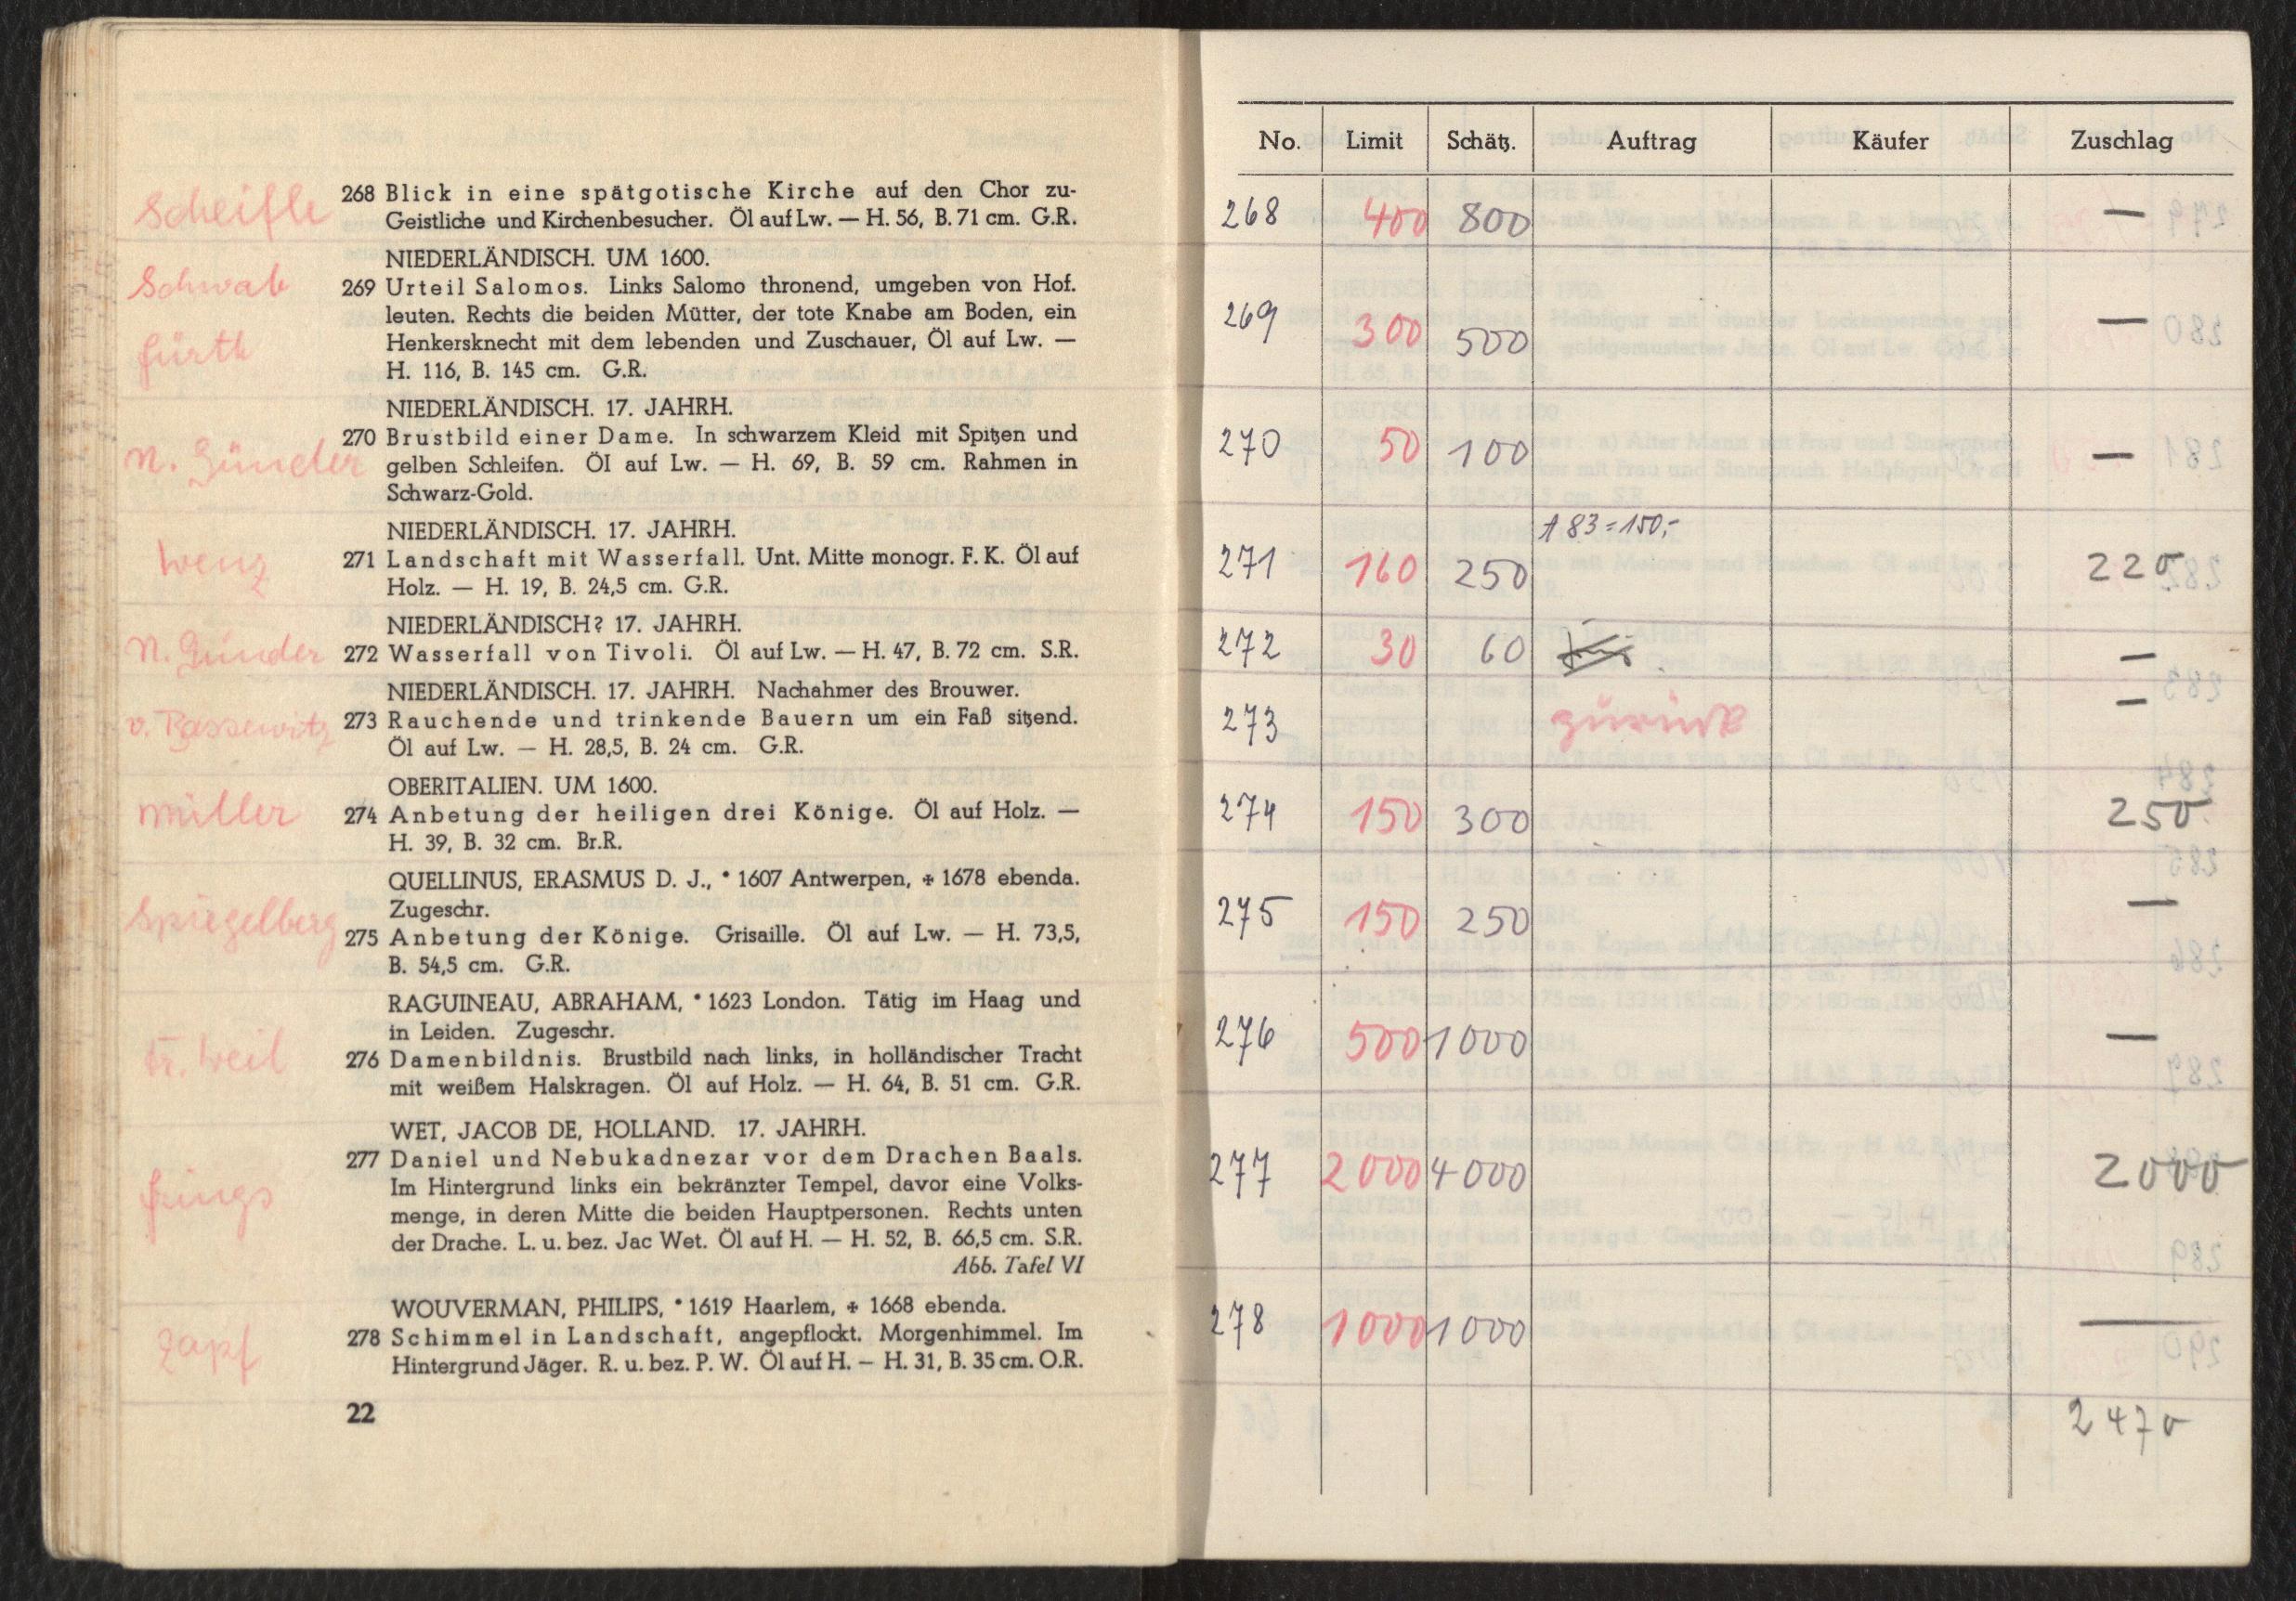 Scheifle
268 Blick in eine spätgotische Kirche auf den Chor zu-
Geistliche und Kirchenbesucher. Öl auf Lw. — H. 56, B. 71 cm. G.R.
NIEDERLÄNDISCH. UM 1600.
Schwab
269 Urteil Salomos. Links Salomo thronend, umgeben von Hof.
leuten. Rechts die beiden Mütter, der tote Knabe am Boden, ein
Fürth
Henkersknecht mit dem lebenden und Zuschauer, Öl auf Lw. —
H. 116, B. 145 cm. G.R.
NIEDERLÄNDISCH. 17. JAHRH.
N. Günder
270 Brustbild einer Dame. In schwarzem Kleid mit Spitzen und
gelben Schleifen. Öl auf Lw. — H. 69, B. 59 cm. Rahmen in
Schwarz-Gold.
NIEDERLÄNDISCH. 17. JAHRH.
Wenz
271 Landschaft mit Wasserfall. Unt. Mitte monogr. F. K. Öl auf
Holz. — H. 19, B. 24,5 cm. G.R.
NIEDERLÄNDISCH? 17. JAHRH.
N. Günder
272 Wasserfall von Tivoli. Öl auf Lw. — H. 47, B. 72 cm. S.R.
NIEDERLÄNDISCH. 17. JAHRH. Nachahmer des Brouwer.
v. Bassewitz
273 Rauchende und trinkende Bauern um ein Faß sitzend.
Öl auf Lw. — H. 28,5, B. 24 cm. G.R.
OBERITALIEN. UM 1600.
Müller
274 Anbetung der heiligen drei Könige. Öl auf Holz. —
H. 39, B. 32 cm. Br.R.
QUELLINUS, ERASMUS D. J., * 1607 Antwerpen, + 1678 ebenda.
Zugeschr.
Spiegelberg
275 Anbetung der Könige. Grisaille. Öl auf Lw. — H. 73,5,
B. 54,5 cm. G.R.
RAGUINEAU, ABRAHAM, * 1623 London. Tätig im Haag und
in Leiden. Zugeschr.
Dr. Weil
276 Damenbildnis. Brustbild nach links, in holländischer Tracht
mit weißem Halskragen. Öl auf Holz. — H. 64, B. 51 cm. G.R.
WET, JACOB DE, HOLLAND. 17. JAHRH.
277 Daniel und Nebukadnezar vor dem Drachen Baals.
Im Hintergrund links ein bekränzter Tempel, davor eine Volks-
menge, in deren Mitte die beiden Hauptpersonen. Rechts unten
der Drache. L. u. bez. Jac Wet. Öl auf H. — H. 52, B. 66,5 cm. S.R.
Abb. Tafel VI
WOUVERMAN, PHILIPS, * 1619 Haarlem, + 1668 ebenda.
Zapf
278 Schimmel in Landschaft, angepflockt. Morgenhimmel. Im
Hintergrund Jäger. R. u. bez. P. W. Öl auf H. — H. 31, B. 35 cm. O.R.
22
No. Limit Schätz. Auftrag Käufer Zuschlag
268 400 800 —
269 300 500 —
270 50 100 —
A 83 = 150,-
271 160 250 220
272 30 60 —
273 zurück —
274 150 300 250
275 150 250 —
276 500 1000 —
277 2000 4000 2000
278 1000 1000 —
2470